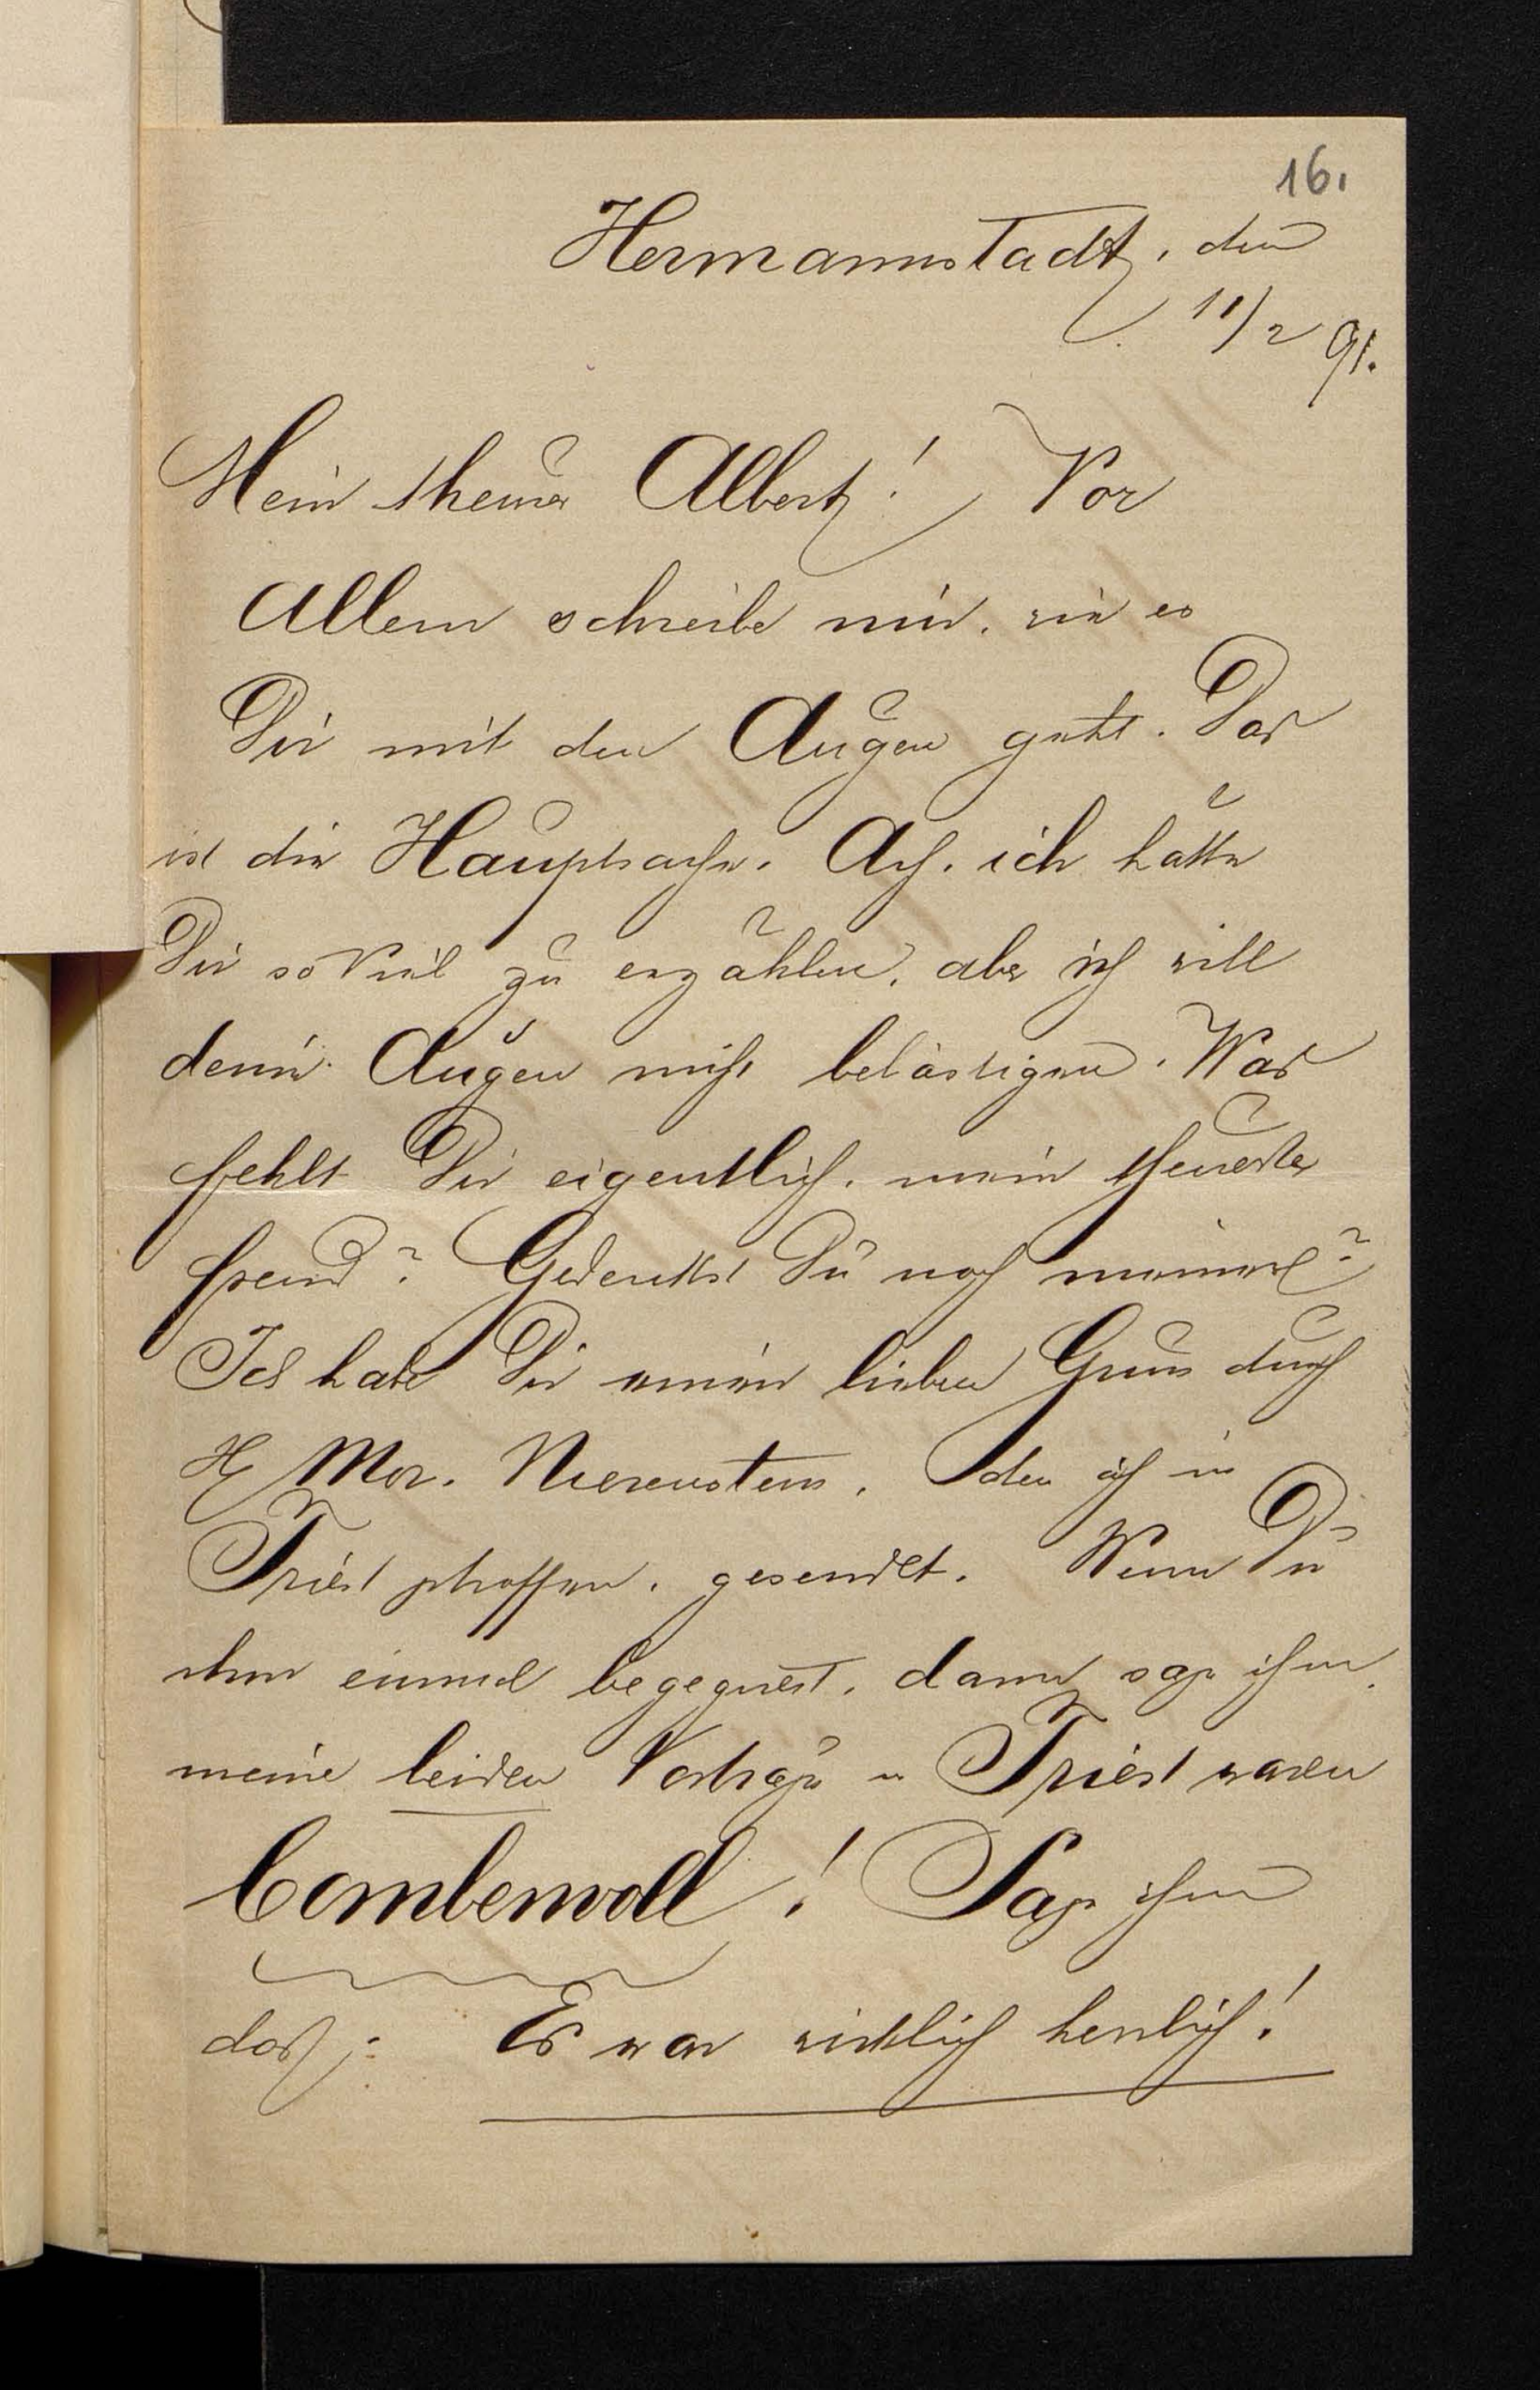 16.
Hermannstadt, den
11/2 91.
Mein theurer Albert! Vor
Allem schreibe mir, wie es
Dir mit den Augen geht. Das
ist die Hauptsache. Ach, ich hätte
Dir so Viel zu erzählen, aber ich will
deine Augen nicht belästigen. Was
fehlt Dir eigentlich, mein theuerster
Freund? Gedenkst Du noch meiner?
Ich habe Dir meinen lieben Gruss durch
H Mor. Nierenstein, den ich in
Triest getroffen, gesendet. Wenn Du
ihm einmal begegnest, dann sage ihm,
meine beiden Vorträge in Triest waren
bombenvoll! Sage ihm
das: Es war wirklich herrlich!